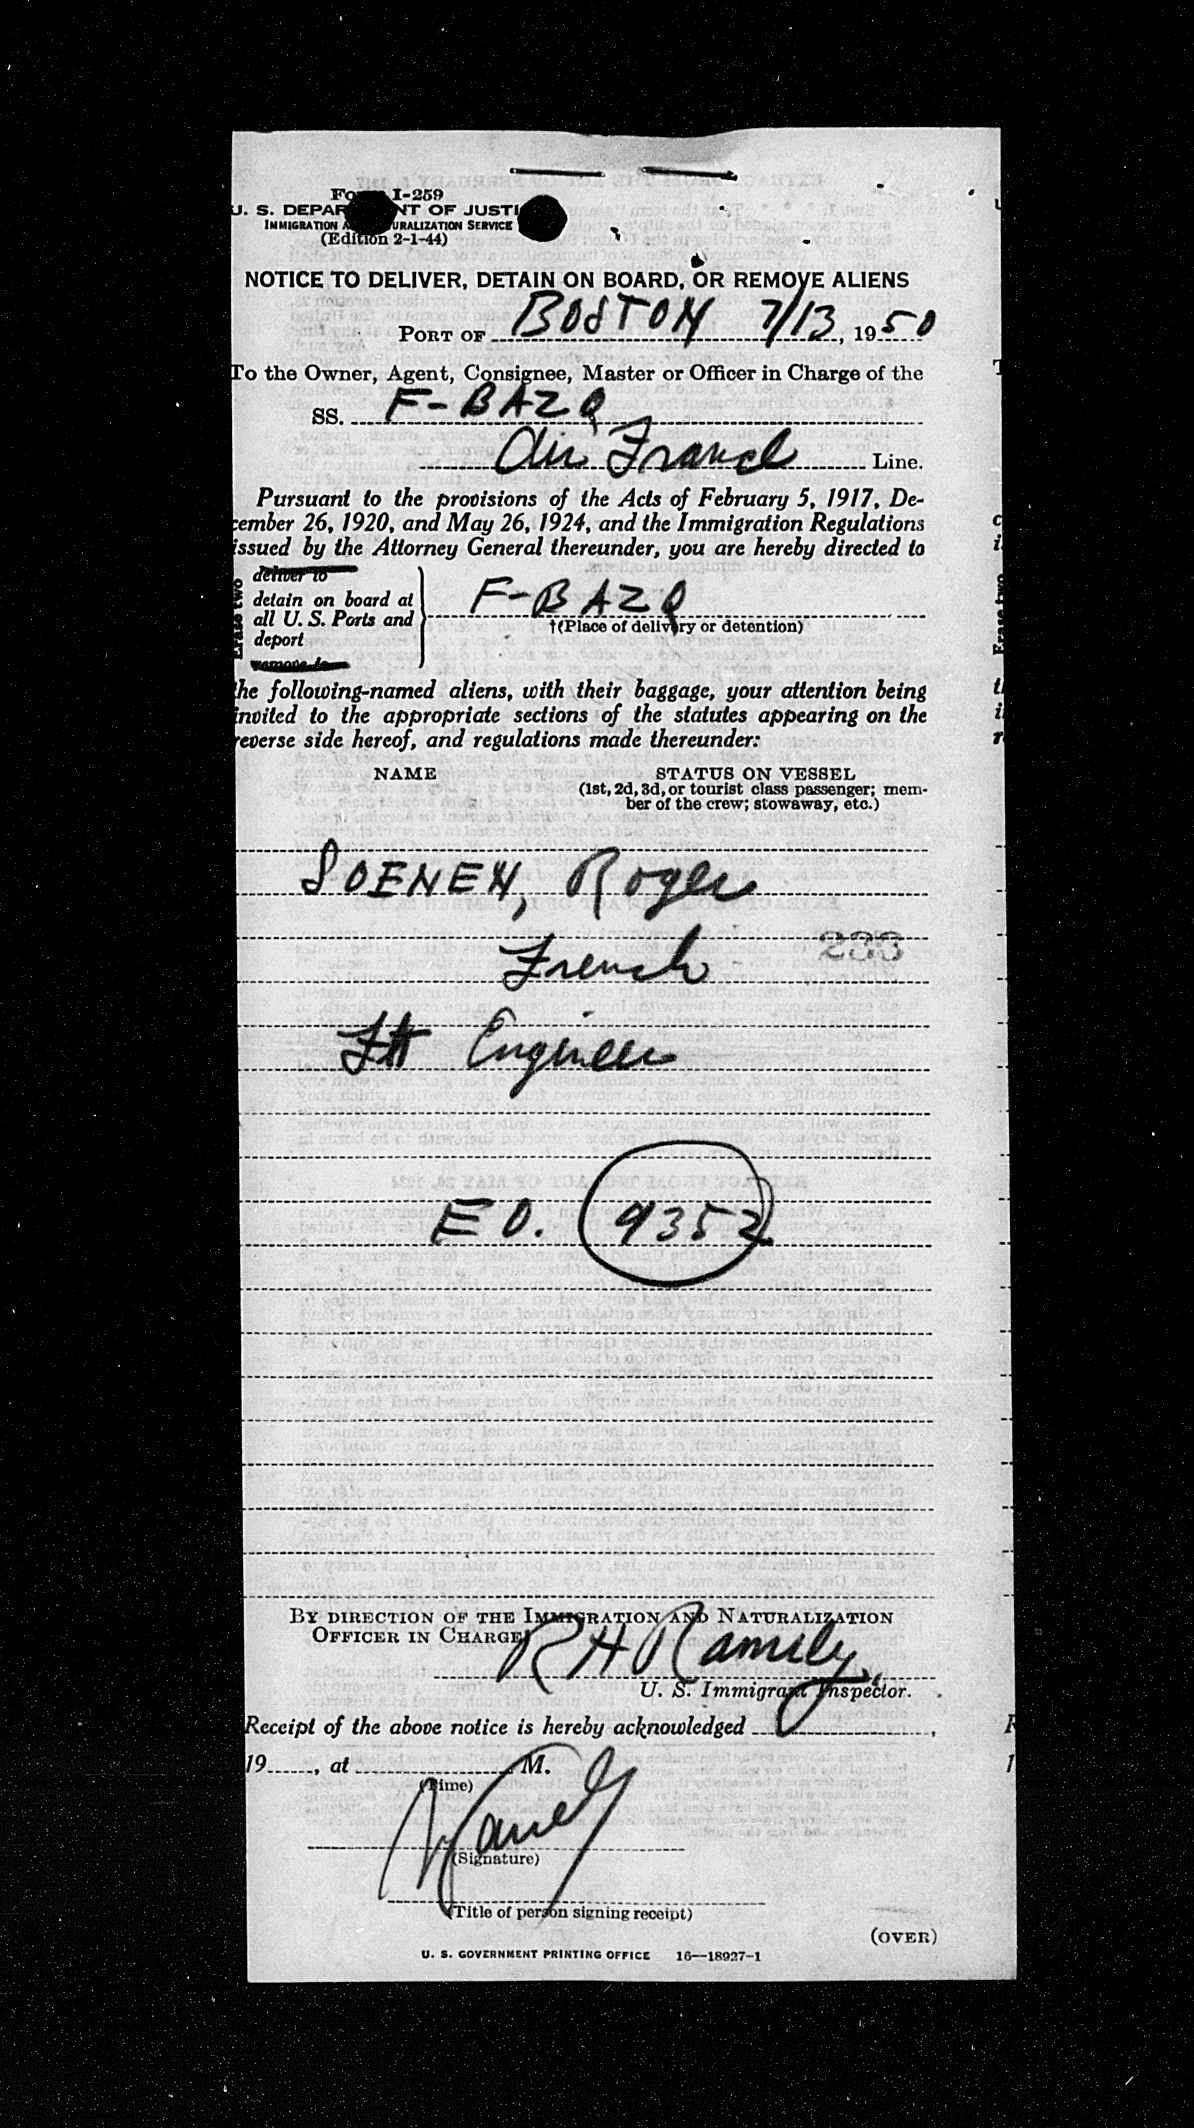 Form I-259
U. S. DEPARTMENT OF JUSTI
IMMIGRATION AND NATURALIZATION SERVICE
(Edition 2-1-44)
NOTICE TO DELIVER, DETAIN ON BOARD, OR REMOVE ALIENS
PORT OF BOSTON 7/13, 1950
To the Owner, Agent, Consignee, Master or Officer in Charge of the
SS. F-BAZQ
Air France Line.
Pursuant to the provisions of the Acts of February 5, 1917, De-
cember 26, 1920, and May 26, 1924, and the Immigration Regulations
issued by the Attorney General thereunder, you are hereby directed to
Erase two
deliver to
detain on board at
all U. S. Ports and
deport
remove to
F-BAZQ
†(Place of delivery or detention)
the following-named aliens, with their baggage, your attention being
invited to the appropriate sections of the statutes appearing on the
reverse side hereof, and regulations made thereunder:
NAME STATUS ON VESSEL
(1st, 2d, 3d, or tourist class passenger; mem-
ber of the crew; stowaway, etc.)
SOENEN, Roger
French 233
Flt Engineer
EO. 9352
BY DIRECTION OF THE IMMIGRATION AND NATURALIZATION
OFFICER IN CHARGE,
R H Ramsey
U. S. Immigrant Inspector.
Receipt of the above notice is hereby acknowledged ,
19 , at M.
(Time)
(Signature)
(Title of person signing receipt)
(OVER)
U. S. GOVERNMENT PRINTING OFFICE 16—18927-1